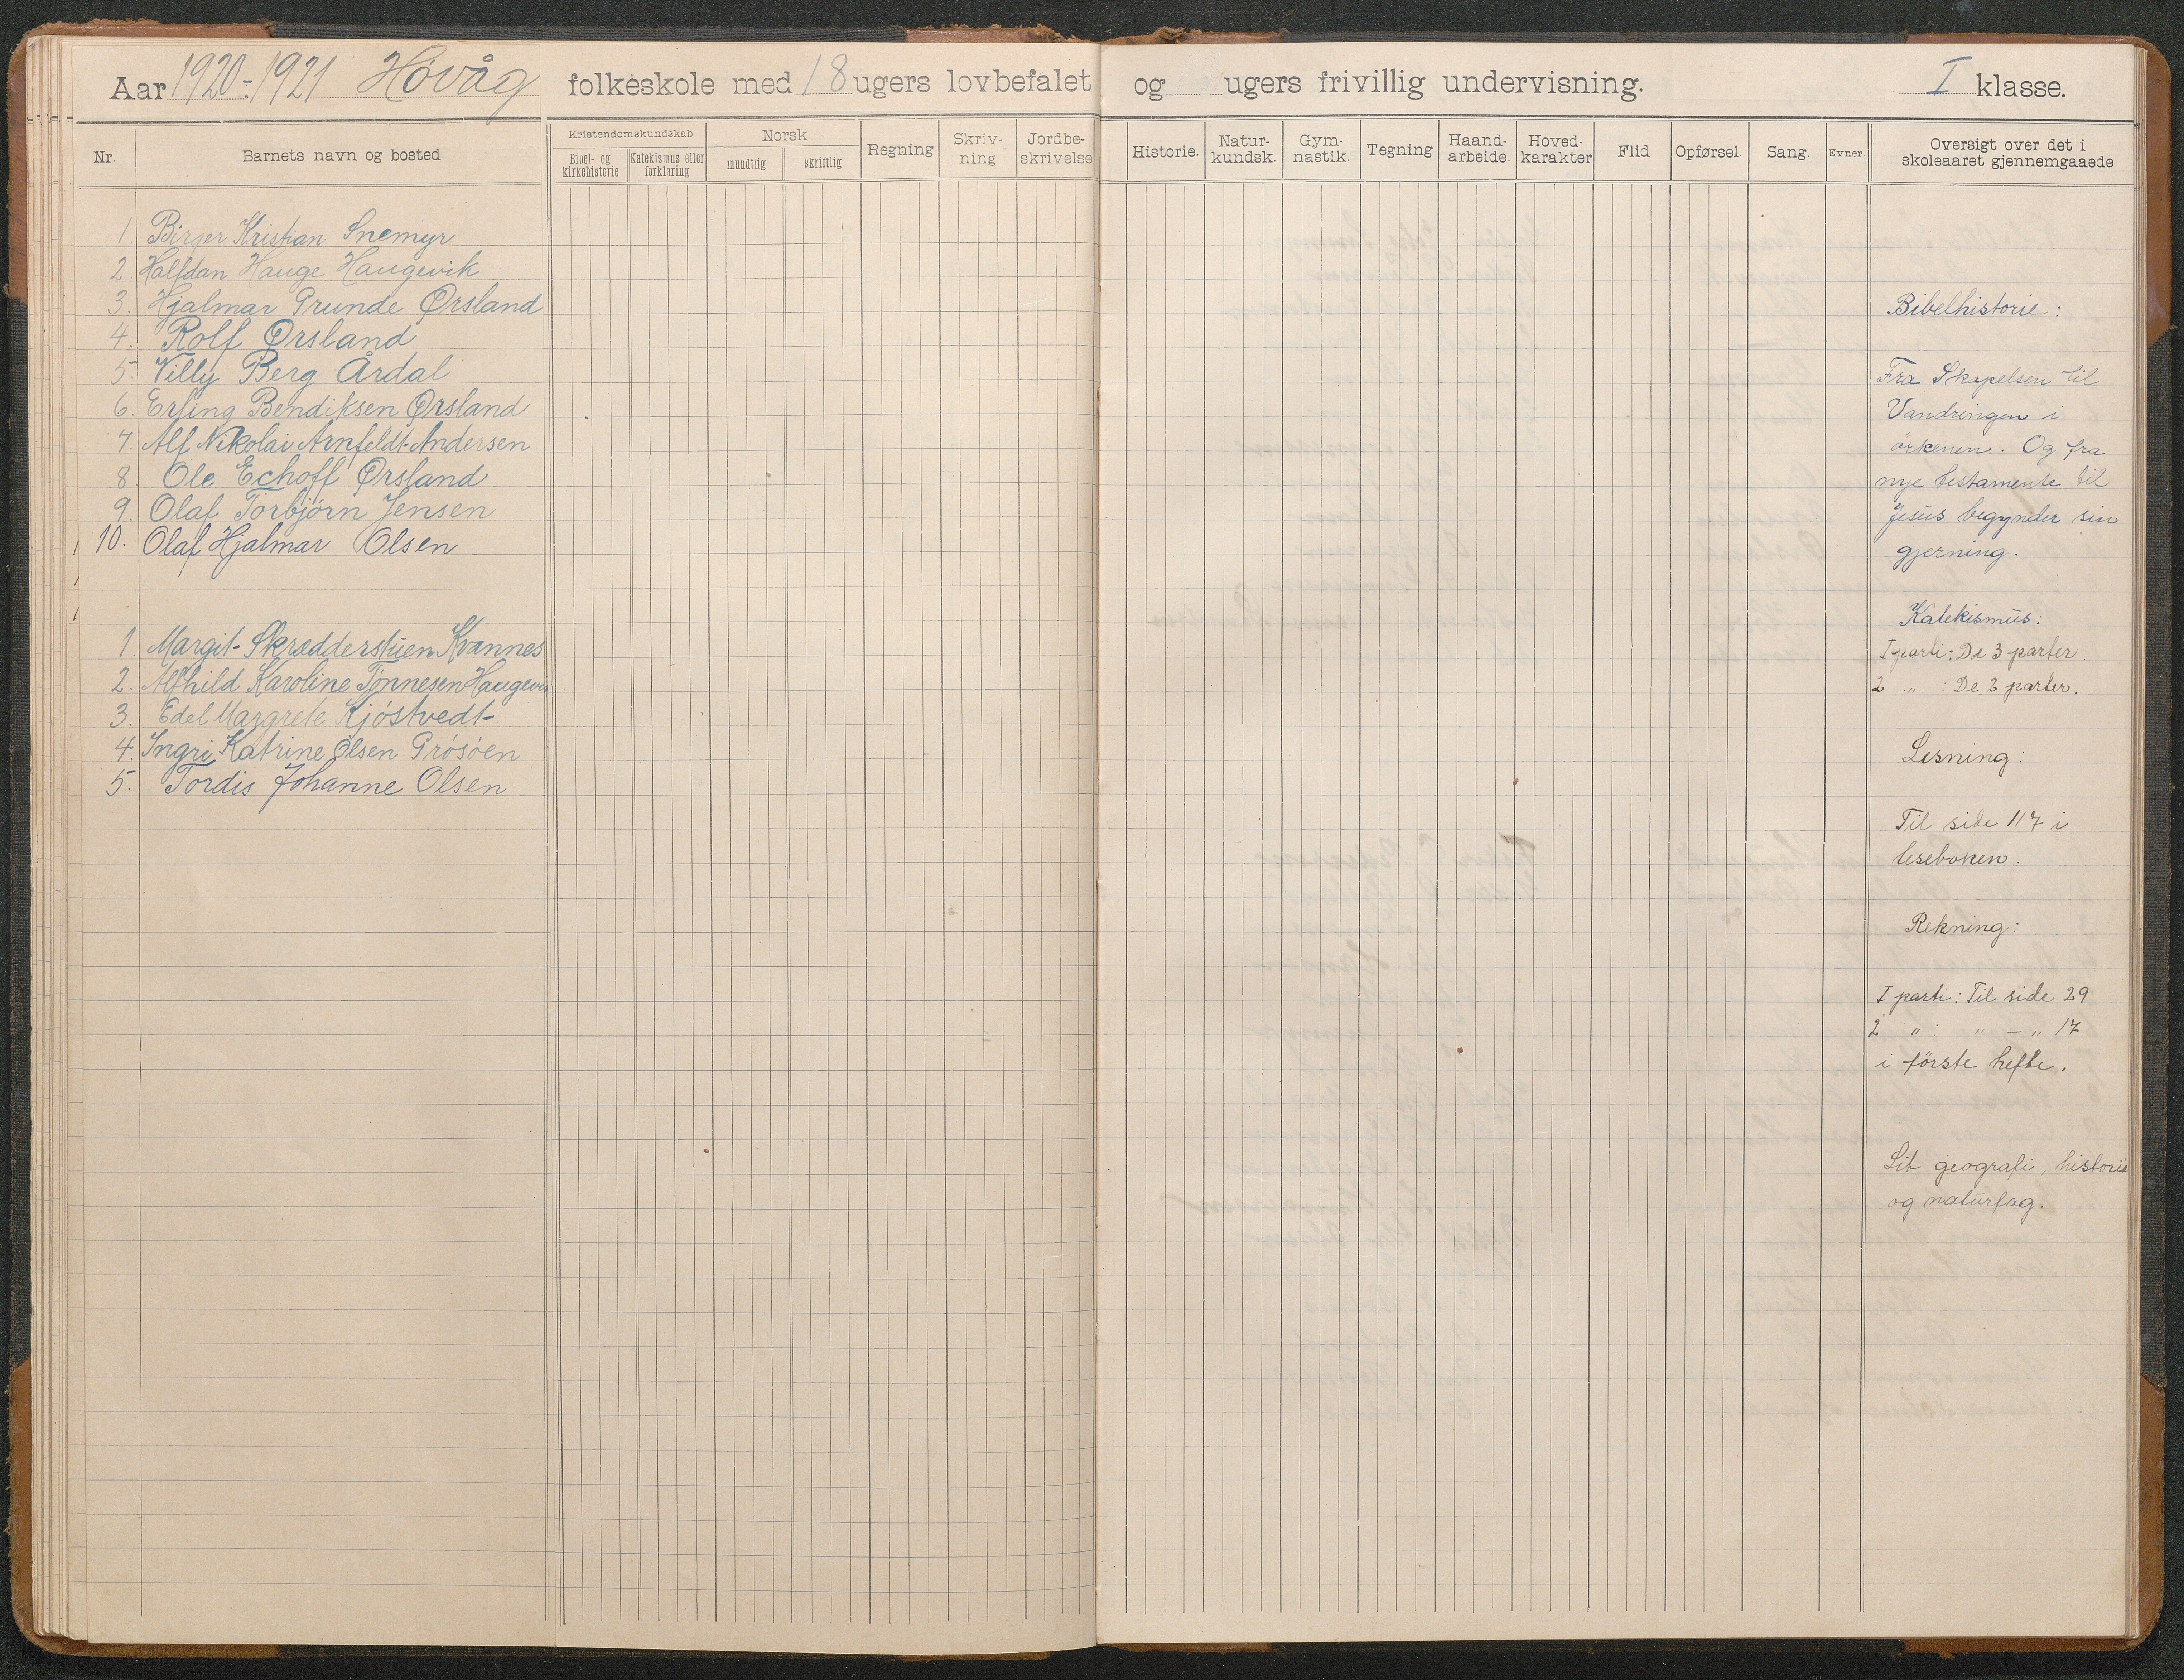 Aar 1920-1921 Høvåg folkeskole med 18 ugers lovbefalet og ugers frivillig undervisning. I klasse.
Nr. Barnets navn og bosted Kristendomskundskab Bibel- og kirkehistorie Katekismus eller forklaring Norsk mundtlig skriftlig Regning Skriv-ning Jordbe-skrivelse Historie. Natur-kundsk. Gym-nastik. Tegning Haand-arbeide. Hoved-karakter Flid Opførsel. Sang. Evner. Oversigt over det i skoleaaret gjennemgaaede
1. Birger Kristian Snemyr
2. Halfdan Hauge Haugevik
3. Hjalmar Prunde Ørsland
4. Rolf Ørsland
5. Villy Berg Årdal
6. Erling Bendiksen Ørsland
7. Alf Nikolai Arnfeldt-Andersen
8. Ole Echoff Ørsland
9. Olaf Torbjørn Jensen
10. Olaf Hjalmar Olsen
1. Margit Skrædderstuen Kvannes
2. Alfhild Karoline Tønnesen Haugevik
3. Edel Margrete Kjöstvedt
4. Ingri Katrine Olsen Prösöen
5. Tordis Johanne Olsen
Bibelhistorie:
Fra Skapelsen til
Vandringen i
örkenen. Og fra
nye testamente til
Jesus begynder sin
gjerning.
Katekismus:
I parti: De 3 parter.
2 " : De 2 parter.
Lesning:
Til side 117 i
leseboken.
Rekning:
I parti: Til side 29
2 " : " - " 17
i förste hefte.
Lit geografi, historie
og naturfag.